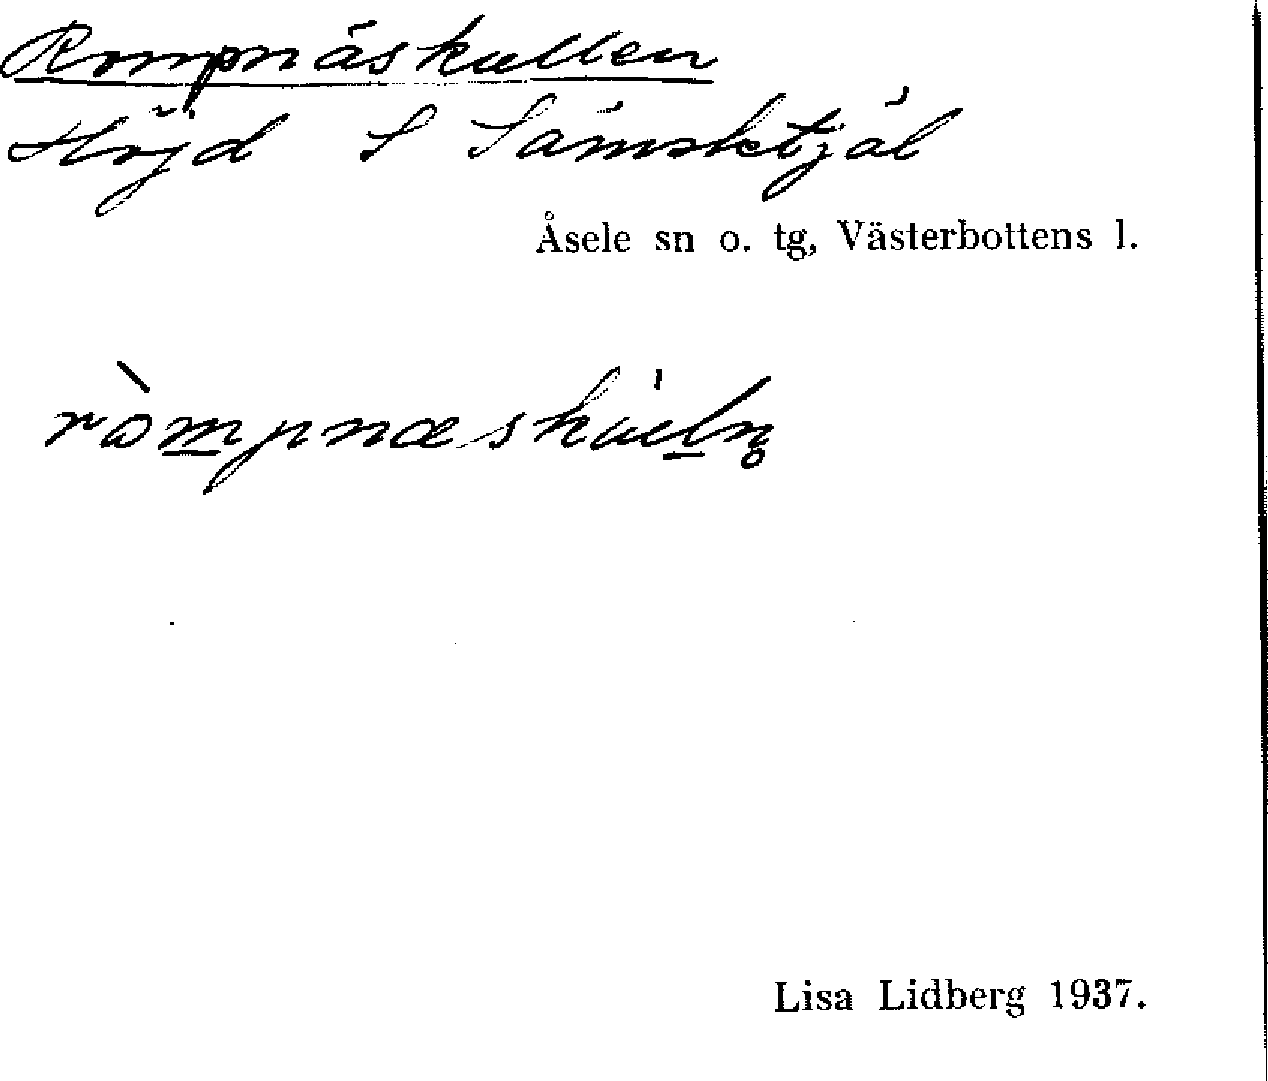 Rompnäskullen
Höjd S Sämsktjäl
Åsele sn o. tg, Västerbottens l.
Lisa Lidberg 1937.